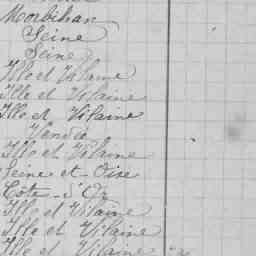 Morbihan
Seine
Seine
Ille et Vilaine
Ille et Vilaine
Ille et Vilaine
Vendée
Ille et Vilaine
Seine et Oise
Côte d'Or
Ille et Vilaine
Ille et Vilaine
Ille et Vilaine